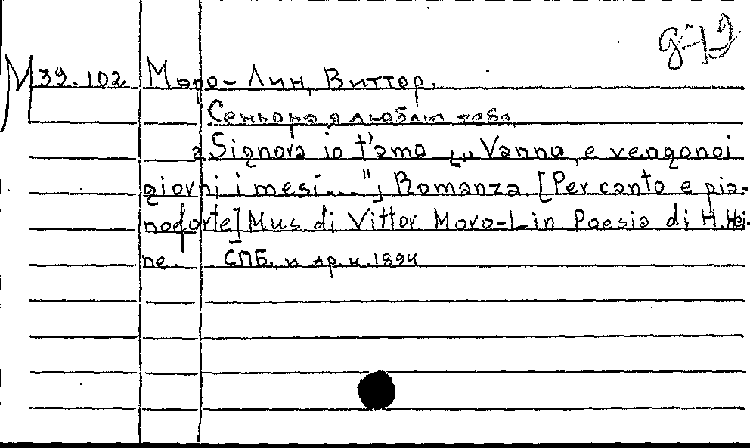 g-72
М 39.102 Моро-Лин, Виттор.
Сеньора я люблю тебя
a. Signora io t'amo [„Vanno, e vengonoi
giorni i mesi..."] Romanza [Per canto e pia-
noforte] Mus. di Vittor Moro-Lin Poesia di H. Hei-
ne. СПБ. и др. ц. 1894